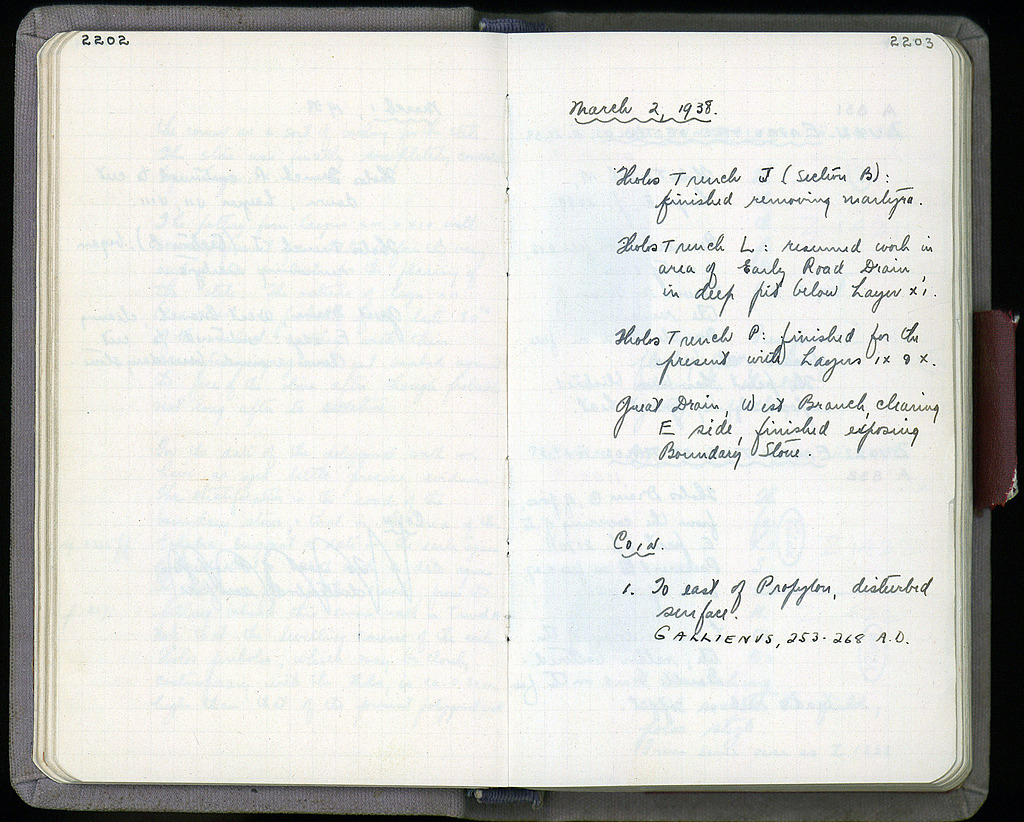 2202
2203
March 2, 1938.
Tholos Trench J (Section B):
finished removing martyra.
Tholos Trench L: resumed work in
area of Early Road Drain,
in deep pit below Layer XI.
Tholos Trench P: finished for the
present with Layers IX & X.
Great Drain, West Branch, clearing
E side, finished exposing
Boundary Stone.
Coin.
1. To east of Propylon, disturbed
surface.
GALLIENUS, 253-268 A.D.